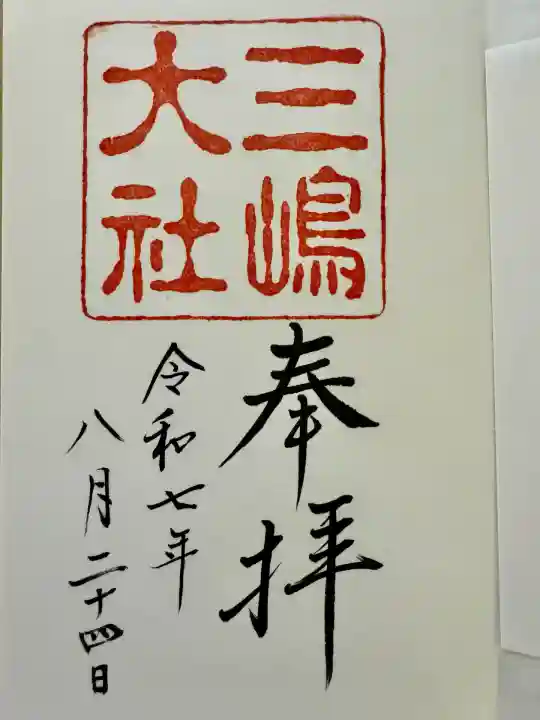 三嶋
大社
奉拝
令和七年
八月二十四日